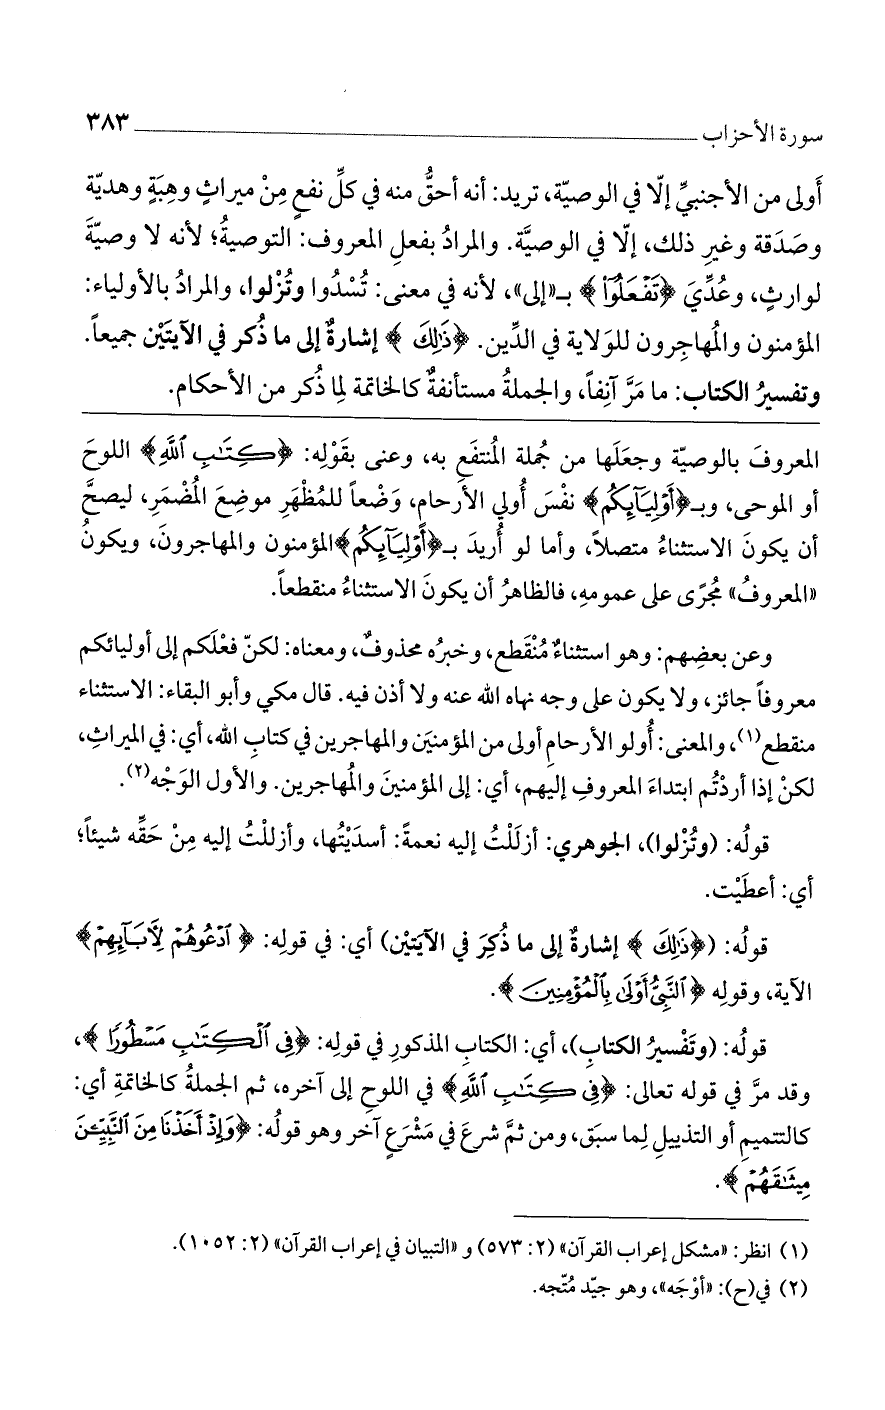 سورة الأحزاب ٣٨٣
أَولى من الأجنبيِّ إلّا في الوصيّة، تريد: أنه أحقُّ منه في كلِّ نفع مِنْ ميراثٍ وهِبَةٍ وهديّة
وصَدَقة وغيرِ ذلك، إلّا في الوصيَّة. والمرادُ بفعلِ المعروف: التوصيةُ؛ لأنه لا وصيّةَ
لوارثٍ، وعُدِّيَ ﴿تَفْعَلُوٓاْ﴾ بـ«إلى»، لأنه في معنى: تُسْدُوا وتُزْلوا، والمرادُ بالأولياء:
المؤمنون والمُهاجِرون للوَلاية في الدِّين. ﴿ذَٰلِكَ﴾ إشارةٌ إلى ما ذُكر في الآيتَيْن جميعاً.
وتفسيرُ الكتاب: ما مَرَّ آنِفاً، والجملةُ مستأنفةٌ كالخاتمة لِما ذُكر من الأحكام.
المعروفَ بالوصيّة وجعَلَها من جُملة المُنتفَعِ به، وعنى بقَوْلِه: ﴿كِتَٰبِ ٱللَّهِ﴾ اللوحَ
أو الموحى، وبـ﴿أَوْلِيَآئِكُم﴾ نفْسَ أُولي الأرحام، وَضْعاً للمُظْهَرِ موضِعَ المُضْمَرِ، ليصحَّ
أن يكونَ الاستثناءُ متصلاً، وأما لو أُريدَ بـ﴿أَوْلِيَآئِكُم﴾ المؤمنون والمهاجرونَ، ويكونُ
«المعروفُ» مُجْرًى على عمومهِ، فالظاهرُ أن يكونَ الاستثناءُ منقطعاً.
وعن بعضِهم: وهو استثناءٌ مُنْقَطع، وخبرُه محذوفٌ، ومعناه: لكنّ فعْلَكم إلى أوليائكم
معروفاً جائز، ولا يكون على وجه نهاه الله عنه ولا أذن فيه. قال مكي وأبو البقاء: الاستثناء
منقطع(١)، والمعنى: أُولو الأرحامِ أولى من المؤمنَين والمهاجرين في كتابِ الله، أي: في الميراثِ،
لكنْ إذا أردْتُم ابتداءَ المعروفِ إليهم، أي: إلى المؤمنينَ والمُهاجرين. والأول الوَجْه(٢).
قولُه: (وتُزْلوا)، الجوهري: أزلَلْتُ إليه نعمةً: أسدَيْتُها، وأزللْتُ إليه مِنْ حَقِّه شيئاً؛
أي: أعطَيْت.
قولُه: (﴿ذَٰلِكَ﴾ إشارةٌ إلى ما ذُكِرَ في الآيَتيْن) أي: في قولِه: ﴿ٱدْعُوهُمْ لِأَبَآئِهِمْ﴾
الآية، وقولِه ﴿ٱلنَّبِىُّ أَوْلَىٰ بِٱلْمُؤْمِنِينَ﴾.
قولُه: (وتَفْسيرُ الكتابِ)، أي: الكتابِ المذكورِ في قولِه: ﴿فِى ٱلْكِتَٰبِ مَسْطُورًا﴾،
وقد مرَّ في قوله تعالى: ﴿فِى كِتَٰبِ ٱللَّهِ﴾ في اللوحِ إلى آخره، ثم الجملةُ كالخاتمةِ أي:
كالتتميمِ أو التذييلِ لِما سبَق، ومن ثمَّ شرعَ في مَشْرَعٍ آخر وهو قولُه: ﴿وَإِذْ أَخَذْنَا مِنَ ٱلنَّبِيِّـۧنَ
مِيثَٰقَهُمْ﴾.
(١) انظر: «مشكل إعراب القرآن» (٢: ٥٧٣) و «التبيان في إعراب القرآن» (٢: ١٠٥٢).
(٢) في(ح): «أوْجَه»، وهو جيّد مُتّجه.